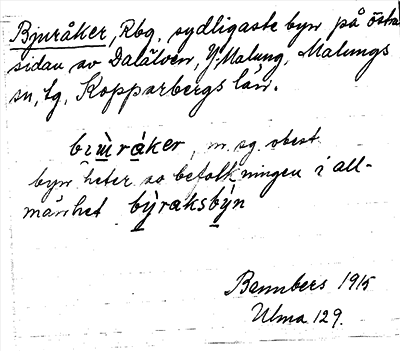 Bjuråker, Rbg, sydligaste byn på östra
sidan av Dalälven, Y. Malung, Malungs
sn, tg, Kopparbergs län.
bɩɯ̀ráker, m. sg. obest
byn heter av befolkningen i all-
männhet bỳraksbýn
1915
Ulma 129.